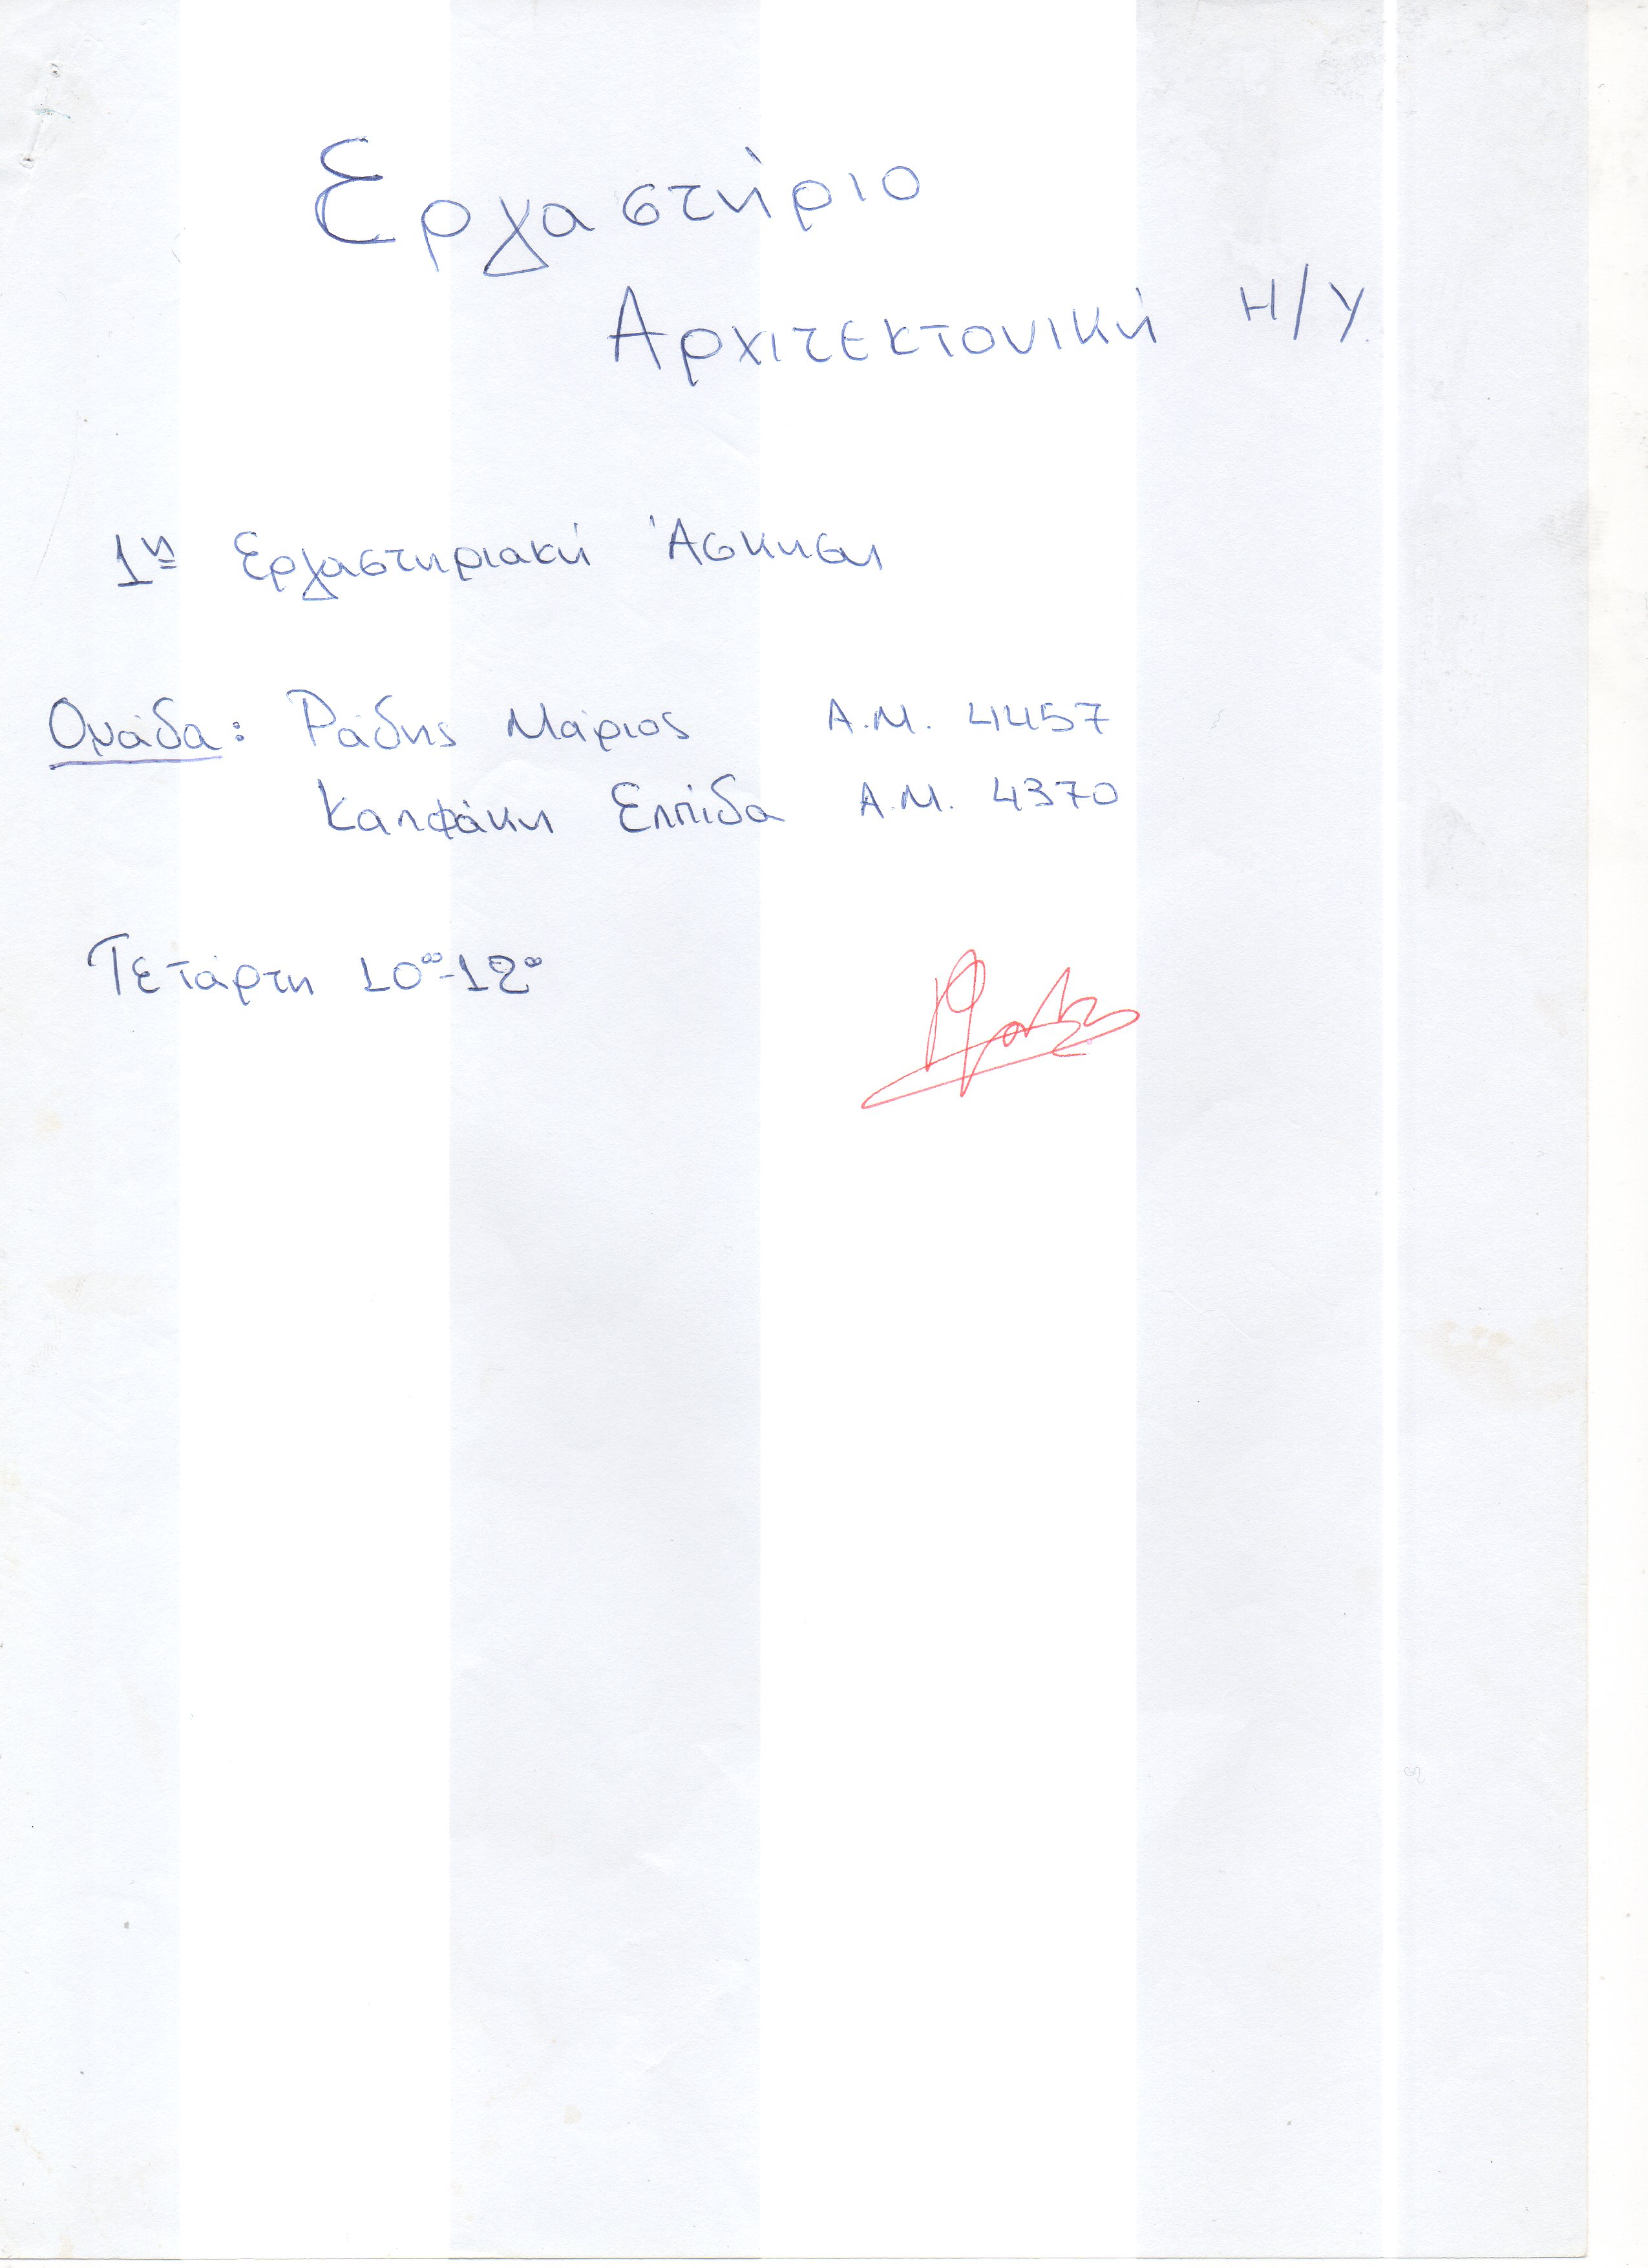 Εργαστήριο
Αρχιτεκτονική Η/Υ
1η Εργαστηριακή Άσκηση
Ομάδα: Ράδης Μάριος Α.Μ. 4457
Καλφάκη Ελπίδα Α.Μ. 4370
Τετάρτη 10⁰⁰-12⁰⁰